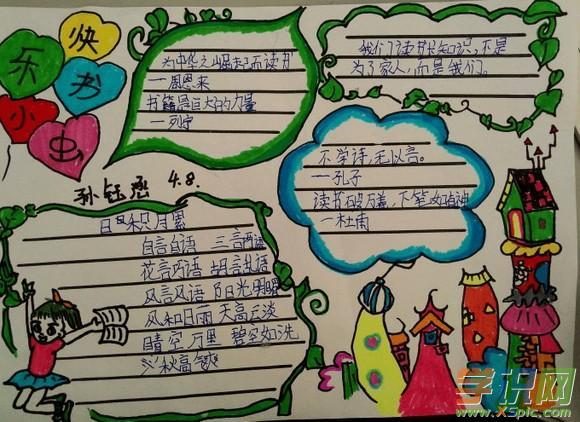 快乐
小书虫
为中华之崛起而读书
一周恩来
书籍是巨大的力量
一列宁
我们读书长知识,不是
为了家人,而是我们。
不学诗,无以言。
一孔子
读书破万卷,下笔如有神
一杜甫
孙钰 4.8.
日积月累
自言自语 三言两语
花言巧语 胡言乱语
风言风语 阳光明媚
风和日丽 天高云淡
晴空万里 碧空如洗
秋高气爽
学识网
www.XSpic.com